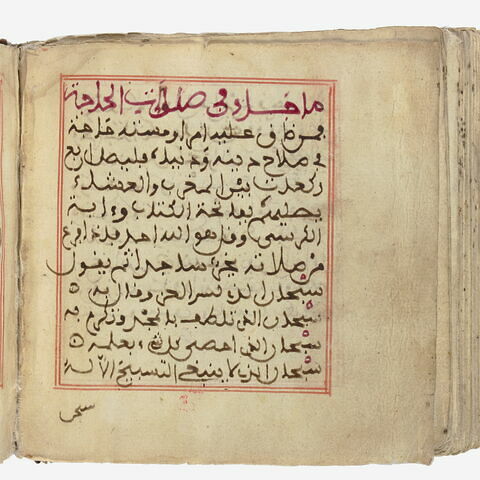 ما جاء في صلوات الحاجة
فمن ضاق عليه امر او مسته حاجة
في صلاح دينه ودنياه فليصل اربع
ركعات بين المغرب والعشاء
بفاتحة الكتاب وءاية
الكرسي وقل هو الله احد فاذا فرغ
من صلاته يخر ساجدا ثم يقول
سبحان الذي لبس العز وقال به
سبحان الذي تعطف بالمجد وتكرم به
سبحان الذي احصى كل شيء بعلمه
سبحان الذي لا ينبغي التسبيح الا له
سبحن